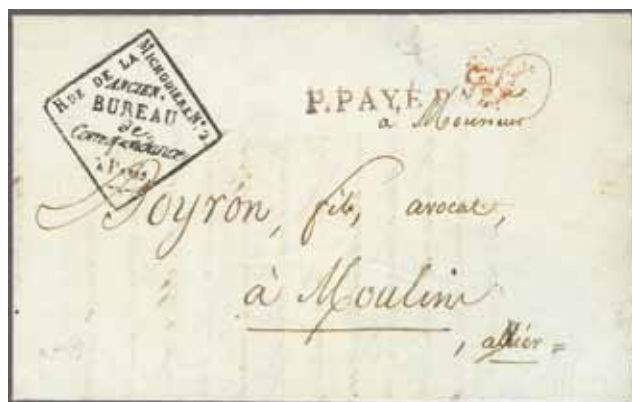 R. DE LA MICHODIERE N.º 2
ANCIEN
BUREAU
de
Correspondance
à Paris
P. PAYÉ
a Monsieur
Boyrón, fils, avocat,
à Moulins
, allier =